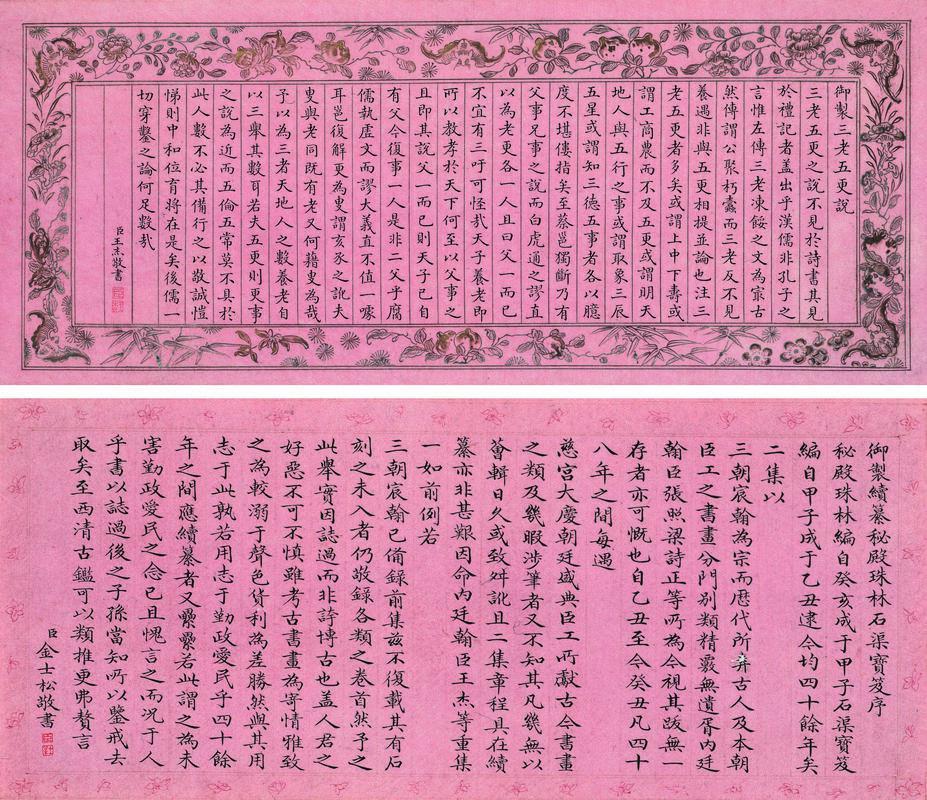 御製三老五更說
三老五更之說不見於詩書其見
於禮記者蓋出乎漢儒非孔子之
言惟左傳三老凍餒之文為㝡古
然傳謂公聚朽蠹而三老反不見
養遇非與五更相提並論也注三
老五更者多矣或謂上中下壽或
謂工商農而不及五更或謂明天
地人與五行之事或謂取象三辰
五星或謂知三德五事者各以臆
度不堪僂指矣至蔡邕獨斷乃有
父事兄事之說而白虎通之謬直
以為老更各一人且曰父一而已
不宜有三吁可怪哉天子養老即
所以教孝於天下何至以父事之
且即其說父一而已則天子已自
有父今復事一人是非二父乎腐
儒執虛文而謬大義直不值一噱
耳邕復解更為叟謂亥豕之訛夫
叟與老同既有老又何藉叟為哉
予以為三者天地人之數養老自
以三舉其數耳若夫五更則更事
之說為近而五倫五常莫不具於
此人數不必其備行之以敬誠愷
悌則中和位育將在是矣後儒一
切穿鑿之論何足數哉
臣王杰敬書
御製續纂秘殿珠林石渠寶笈序
秘殿珠林編自癸亥成于甲子石渠寶笈
編自甲子成于乙丑逮今均四十餘年矣
二集以
三朝宸翰為宗而歷代所弆古人及本朝
臣工之書畫分門別類精覈無遺胥內廷
翰臣張照梁詩正等所為今視其跋無一
存者亦可慨也自乙丑至今癸丑凡四十
八年之間每遇
慈宮大慶朝廷盛典臣工所獻古今書畫
之類及幾暇涉筆者又不知其凡幾無以
薈輯日久或致舛訛且二集章程具在續
纂亦非甚艱因命內廷翰臣王杰等重集
一如前例若
三朝宸翰已備錄前集茲不復載其有石
刻之未入者仍敬錄各類之卷首然予之
此舉實因誌過而非誇博古也蓋人君之
好惡不可不慎雖考古書畫為寄情雅致
之為較溺于聲色貨利為差勝然與其用
志于此孰若用志于勤政愛民乎四十餘
年之間應續纂者又纍纍若此謂之為未
害勤政愛民之念已且愧言之而況于人
乎書以誌過後之子孫當知所以鑒戒去
取矣至西清古鑑可以類推更弗贅言
臣金士松敬書